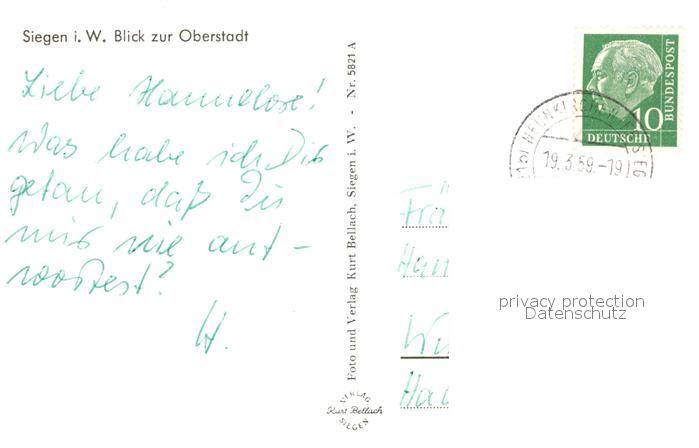 Siegen i. W. Blick zur Oberstadt
Liebe Hannelore!
Was habe ich Dir
getan, daß Du
mir nie ant-
wortest?
H.
Foto und Verlag Kurt Bellach, Siegen i. W. - Nr. 5821 A
VERLAG
Kurt Bellach
SIEGEN
DEUTSCHE
BUNDESPOST
10
NEUNKIRCHEN
19.3.59.-19
Frä
Han
Wi
Hau
privacy protection
Datenschutz